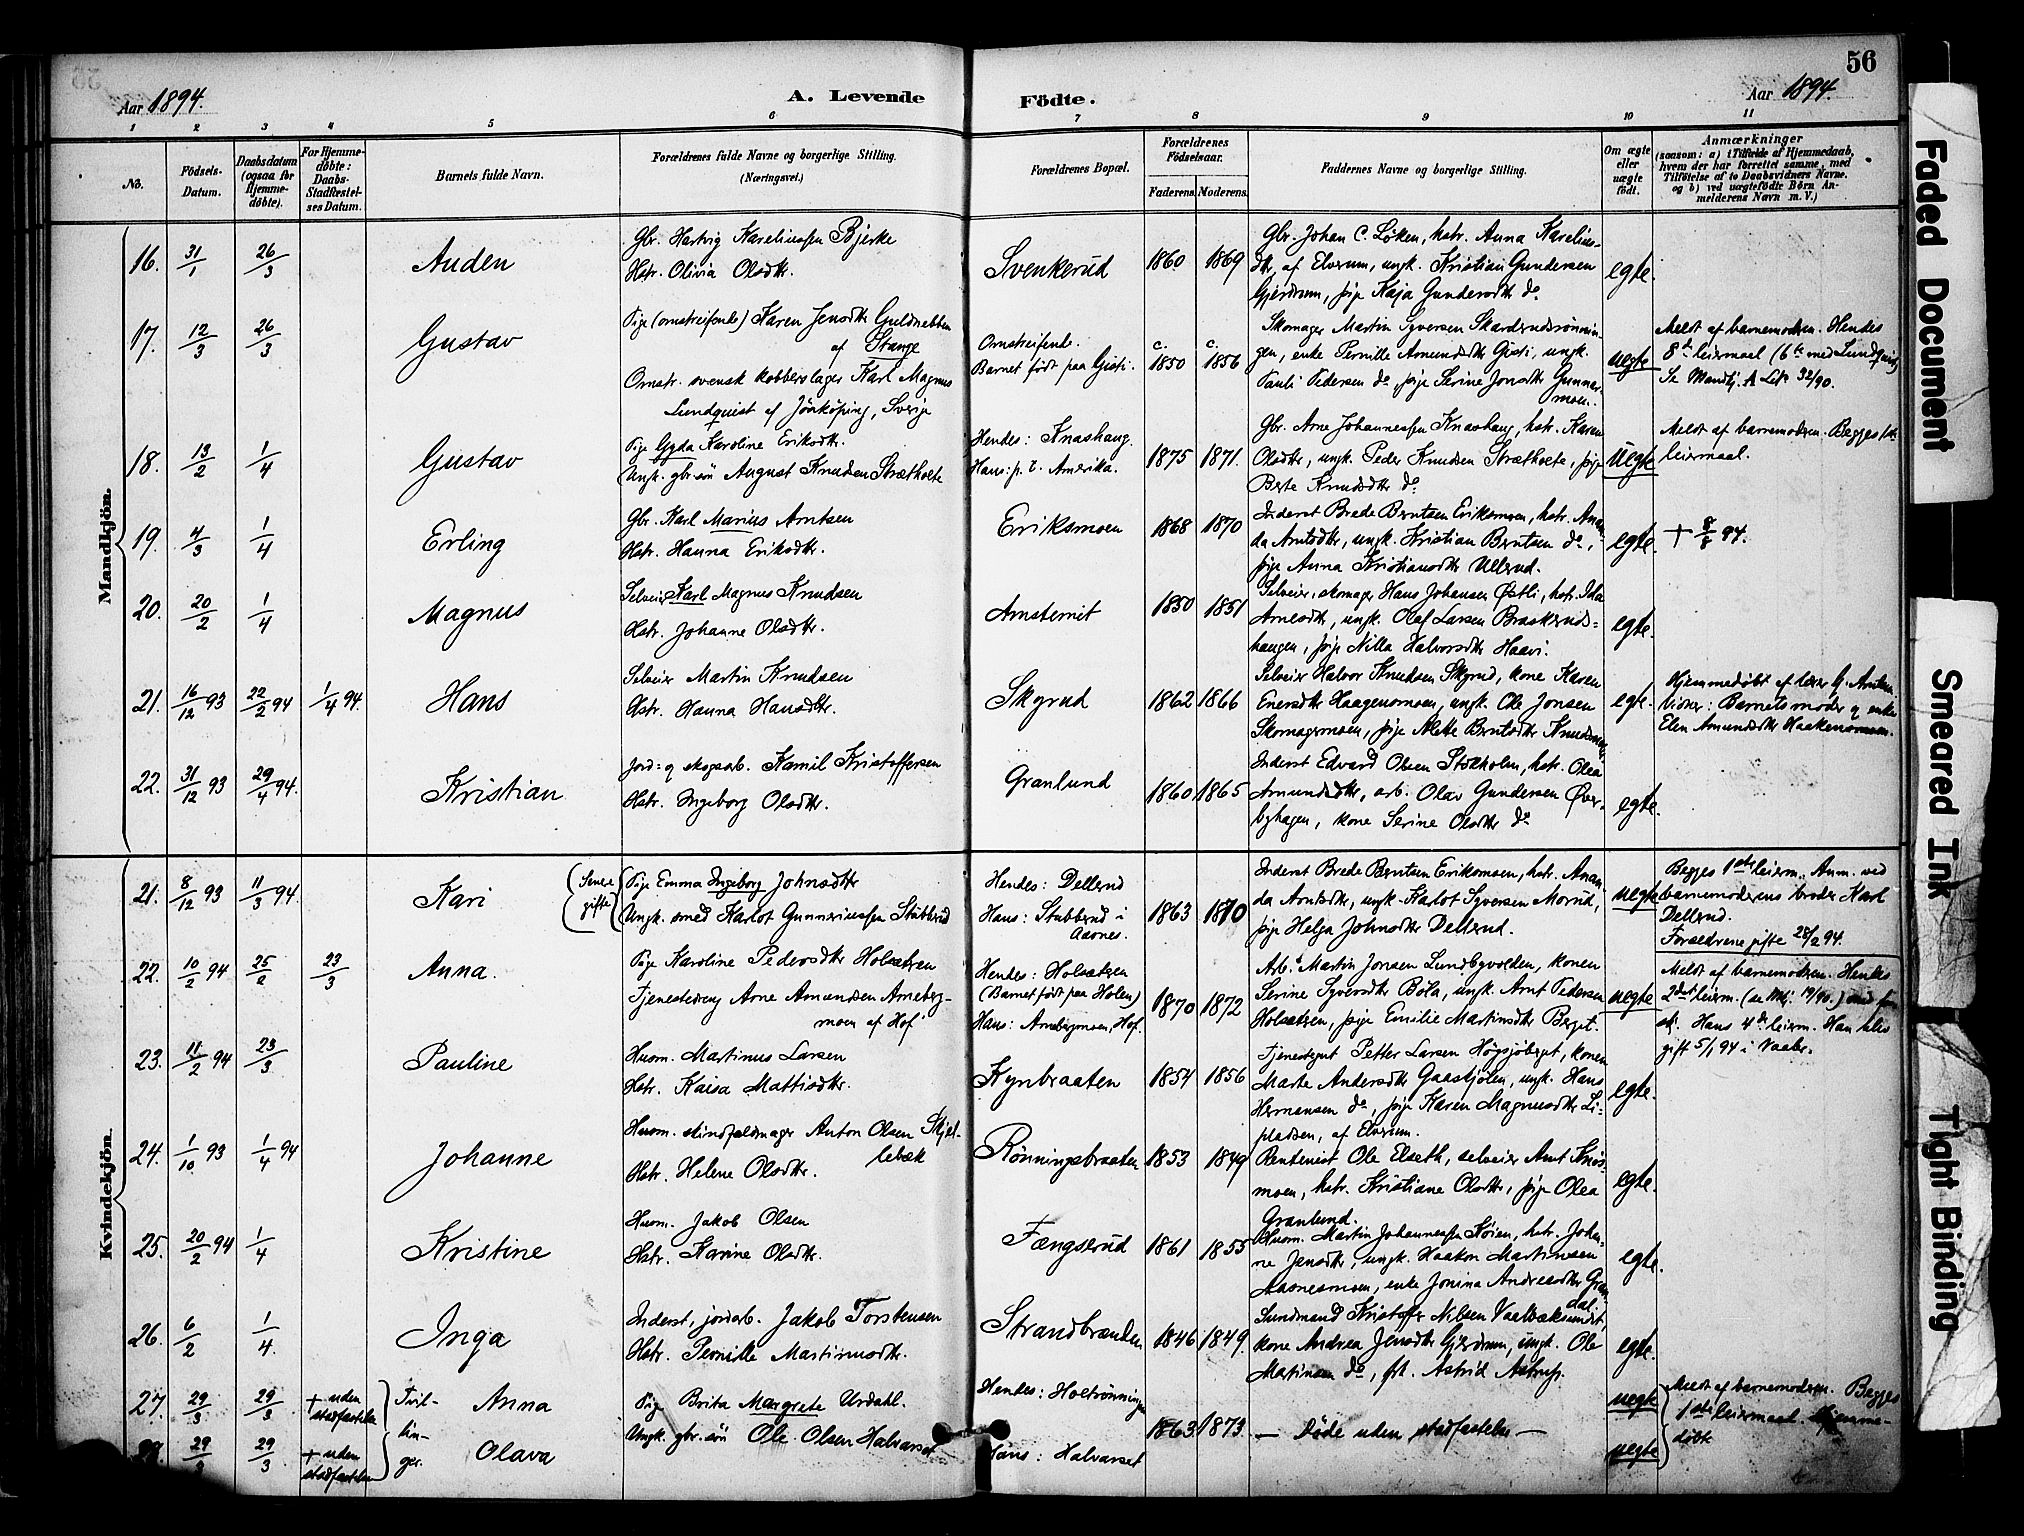 56
Aar 1894.
A. Levende Födte.
Aar 1894.
1 2 3 4 5 6 7 8 9 10 11
No.
Födsels-Datum.
Daabsdatum (ogsaa for Hjemme-döbte).
For Hjemme-döbte: Daabs-Stadfæstel-ses Datum.
Barnets fulde Navn.
Forældrenes fulde Navne og borgerlige Stilling.
(Næringsvei.)
Forældrenes Bopæl.
Forældrenes Födselsaar.
Faderens. Moderens.
Faddernes Navne og borgerlige Stilling.
Om ægte eller uægte födt.
Anmærkninger
(saasom: a) i Tilfælde af Hjemmedaab,
hvem der har forrettet samme, med
Tilföielse af to Daabsvidners Navne.
og b) ved uægtefödte Börn An-
melderens Navn m. V.)
Mandkjön.
16. 31/1 26/3 Auden
Gbr. Hartvig Karelinssen Bjerke
Hstr. Olivia Olsdtr.
Svenkerud 1860 1869
Gbr. Johan C. Løken, hstr. Anna Karelius-
dtr, af Elverum, ungk. Kristian Gundersen
Gjerdrum, pige Kaja Gundersdtr do
egte.
17. 12/3 26/3 Gustav
Pige (omstreifende) Karen Jensdtr Guldnebben
af Stange
Omstr. svensk kobberslager Karl Magnus
Lundquist af Jönköping, Sverige
Omstreifende.
Barnet født paa Gisti.
c. 1850 c. 1856
Skomager Martin Syversen Skarderudsrønnin-
gen, enke Pernille Amundsdtr Gisti, ungk.
Pauli Pedersen do, pige Serine Jonsdtr Gunnar-
moen.
uegte
Meldt af barnemoderen. Hendes
8de leiermaal (6te med Lundquist)
Se Mandkj. A Litr 32/90.
18. 13/2 1/4 Gustav
Pige Gyda Karoline Eriksdtr.
Ungk. gbr. søn August Knudsen Strætkvete
Hendes: Knashaug.
Hans: p. t. Amerika.
1875 1871.
Gbr. Arne Johannessen Knashaug, hstr. Karen
Olsdtr, ungk. Peder Knudsen Strætkvete, pige
Berte Knudsdtr do
Uegte
Meldt af barnemoderen. Begges 1ste
leiermaal.
19. 4/3 1/4 Erling
Gbr. Karl Marius Arntsen
Hstr. Hanna Eriksdtr.
Eriksmoen 1868 1870
Inderst Brede Berntsen Eriksmoen, hstr. Anan-
da Arntsdtr, ungk. Kristian Berntsen do,
pige Anna Kristiansdtr Ullerud.
egte.
† 8/8 94.
20. 20/2 1/4 Magnus
Selveier Karl Magnus Knudsen
Hstr. Johanne Olsdtr.
1850 1851
Selveier, skomager Hans Johansen Østli, hstr. Ida
Arnesdtr, ungk. Olaf Larsen Braskeruds-
haugen, pige Nilla Halvorsdtr Haavi.
egte.
21. 16/12 93 22/2 94 1/4 94. Hans
Selveier Martin Knudsen
Hstr. Hanna Hansdtr.
Skyrud 1862 1866
Selveier Halvor Knudsen Skyrud, kone Karen
Enersdtr Haagenomoen, ungk. Ole Jonsen
Skomagermoen, pige Mette Berntsdtr Knudsmoen
egte.
Hjemmedøbt af lærer G. Arntsen.
Vidner: Barnets moder og enke
Elen Amundsdtr Haakenomoen.
22. 31/12 93 29/4 94. Kristian
Jord- og skogsarb. Kamil Kristoffersen
Hstr. Ingeborg Olsdtr.
Granlund 1860 1865
Inderst Edvard Olsen Stokholm, hstr. Olea
Amundsdtr, arb. Olav Gundersen Øver-
byhagen, kone Serine Olsdtr do
egte.
Kvindekjön.
21. 8/12 93 11/3 94. Kari
(Senere gifte)
Pige Emma Ingeborg Johnsdtr
Ungk. smed Karlot Gunneriussen Stubberud
Hendes: Dellerud
Hans: Stubberud i
Aasnes.
1863 1870
Inderst Brede Berntsen Eriksmoen, hstr. Anan-
da Arntsdtr, ungk. Karlot Syversen Morud,
pige Helga Johnsdtr Dellerud.
uegte
Begges 1ste leierm. Anm. ved
barnemoderens broder Karl
Dellerud.
Forældrene gifte 28/2 94.
22. 10/2 94 25/2 23/3 Anna.
Pige Karoline Pedersdtr Holsætren
Tjenestedreng Arne Amundsen Arneberg-
moen af Hof
Hendes: Holsætren
(Barnet født paa Holen)
Hans: Arnebergmoen, Hof.
1870 1872
Arb. Martin Jonsen Lundbyvolden, konen
Serine Syversdtr Bøla, ungk. Arnt Pedersen
Holsætren, pige Emilie Martinsdtr Berget.
uegte
Meldt af barnemoderen. Hendes
2det leierm. (se Mkj. 19/90.)
Hans 4de leierm. Han blev
gift 5/1 94 i Vaaler.
23. 11/2 94 23/3 Pauline
Husm. Martinus Larsen
Hstr. Kaisa Mattisdtr.
Kynbraaten 1854 1856
Tjenestegut Petter Larsen Høgsjøberget, konen
Marte Andersdtr Gaastjølen, ungk. Hans
Hermansen do, pige Karen Magnusdtr Li-
pladsen, af Elverum.
egte.
24. 1/10 93 1/4 94 Johanne
Husm. skindfældmager Anton Olsen Skjel-
lebæk
Hstr. Helene Olsdtr.
Rønningsbraaten 1853 1849
Rentenist Ole Elseth, selveier Arnt Knös-
moen, hstr. Kristiane Olsdtr, pige Olea
Granlund.
egte.
25. 20/2 94 1/4 Kristine
Husm. Jakob Olsen
Hstr. Karine Olsdtr.
Fængserud 1861 1855
Husm. Martin Johannessen Køien, hstr. Johan-
ne Jensdtr, ungk. Haakon Martinsen
Aasnesmoen, enke Jonina Andreasdtr Gran-
dal.
egte.
26. 6/2 1/4. Inga
Inderst, jordarb. Jakob Torstensen
Hstr. Pernille Martinusdtr.
Strandbrænden 1846 1849.
Lensmand Kristoffer Nilsen Vaalbæksundet,
kone Andrea Jensdtr Gjerdrum, ungk. Ole
Martinsen do, frk. Astrid Astrup.
egte.
27. 29/3 29/3 † uden stadfæstelse
Tvil-lin-ger.
Anna
Pige Brita Margrete Urdahl.
Ungk. gbr. søn Ole Olsen Halvarset
Hendes: Holtrønningen
1863 1873.
— Døde uden stadfæstelse —
uegte
Meldt af barnemoderen. Begges
1ste leiermaal. Hjemme-
døbt
29/3 29/3 † uden stadfæstelse Olava
Hans: Halvarset
uegte
Faded Document
Smeared Ink
Tight Binding